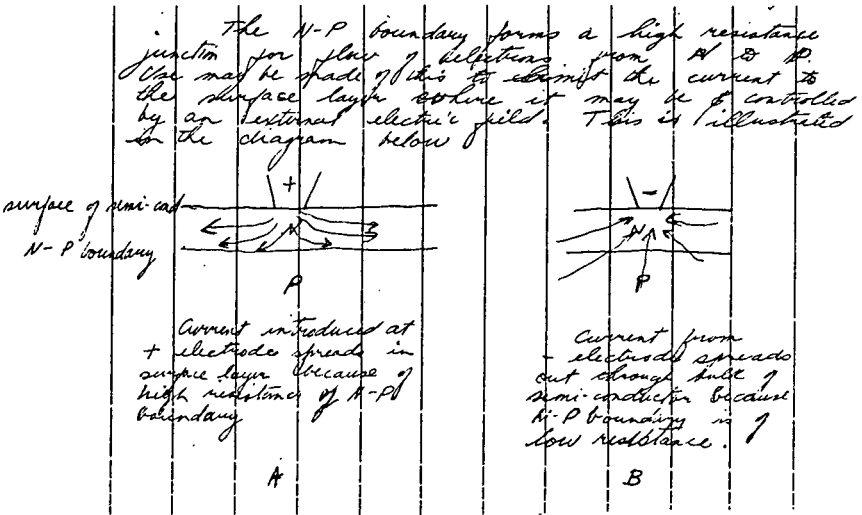 The N-P boundary forms a high resistance
junction for flow of electrons from N to P.
Use may be made of this to limit the current to
the surface layer where it may be controlled
by an external electric field. This is illustrated
in the diagram below
+
surface of semi-cond
N
N-P boundary
P
Current introduced at
+ electrode spreads in
surface layer because of
high resistance of N-P
boundary
A
-
N
P
Current from
- electrode spreads
out through bulk of
semi-conductor because
N-P boundary is of
low resistance.
B